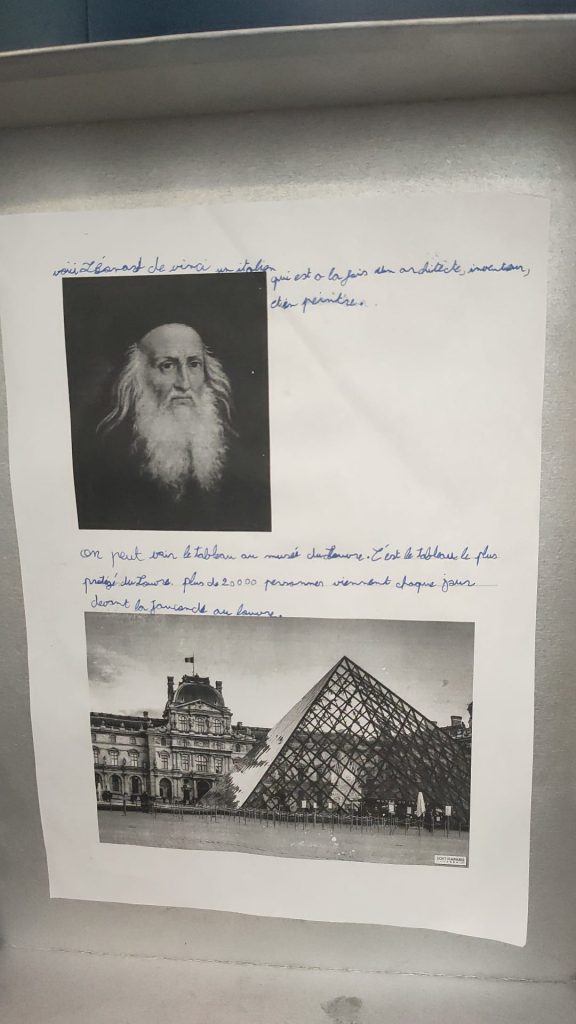 voici Léonard de vinci un italien qui est a la fois un architècte, inventeur,
et un peintre.
On peut voir le tableau au musée du Louvre. C'est le tableau le plus
protégé du Louvre. plus de 20000 personnes viennent chaque jour
devant la Joconde au louvre.